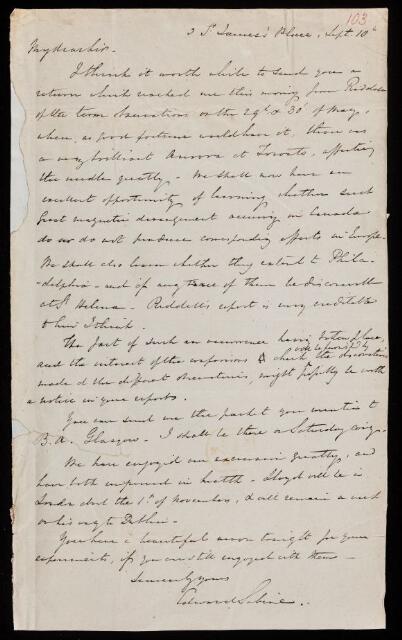 103
3 St James's Place, Sept 10th
My dear Sir -
I think it worth while to send you a
return which reached me this morning from Riddell
of the term observations on the 29th & 30 of May,
when, as good fortune would have it, there was
a very brilliant Aurora at Toronto, affecting
the needles greatly. - We shall now have an
excellent opportunity of learning whether such
great magnetic derangement occurring in Canada
do or do not produce corresponding effects in Europe.
We shall also learn whether they extend to Phila
-delphia - and if any trace of them be discernible
at St Helena - Riddell's report is very creditable
to him I think.
The fact of such an occurrence having taken place,
and the interest of the comparisons with the observations
made at the different observatories, might possibly be worth
a notice in your reports.
You can send me the packet you mention to
B. A. Glasgow - I shall be there on Saturday
We have enjoyed our excursion greatly, and
have both improved in health - Lloyd will be in
London about the 1st of November, & will remain a week
on his way to Dublin -
You have a beautiful moon tonight for your
experiments, if you are still engaged with them -
Sincerely yours
Edward Sabine.